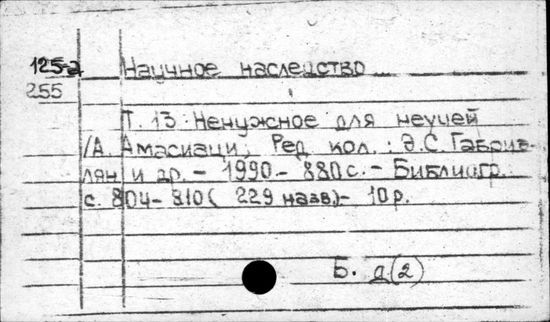 125-2 Научное наследство
255
Т. 13: Ненужное для неучей
/А. Амасиаци; Ред. кол.: Э.С. Габриэ-
лян и др. - 1990. - 880 с. - Библиогр.
с. 804-810 (229 назв.) - 10 р.
Б. д(2)